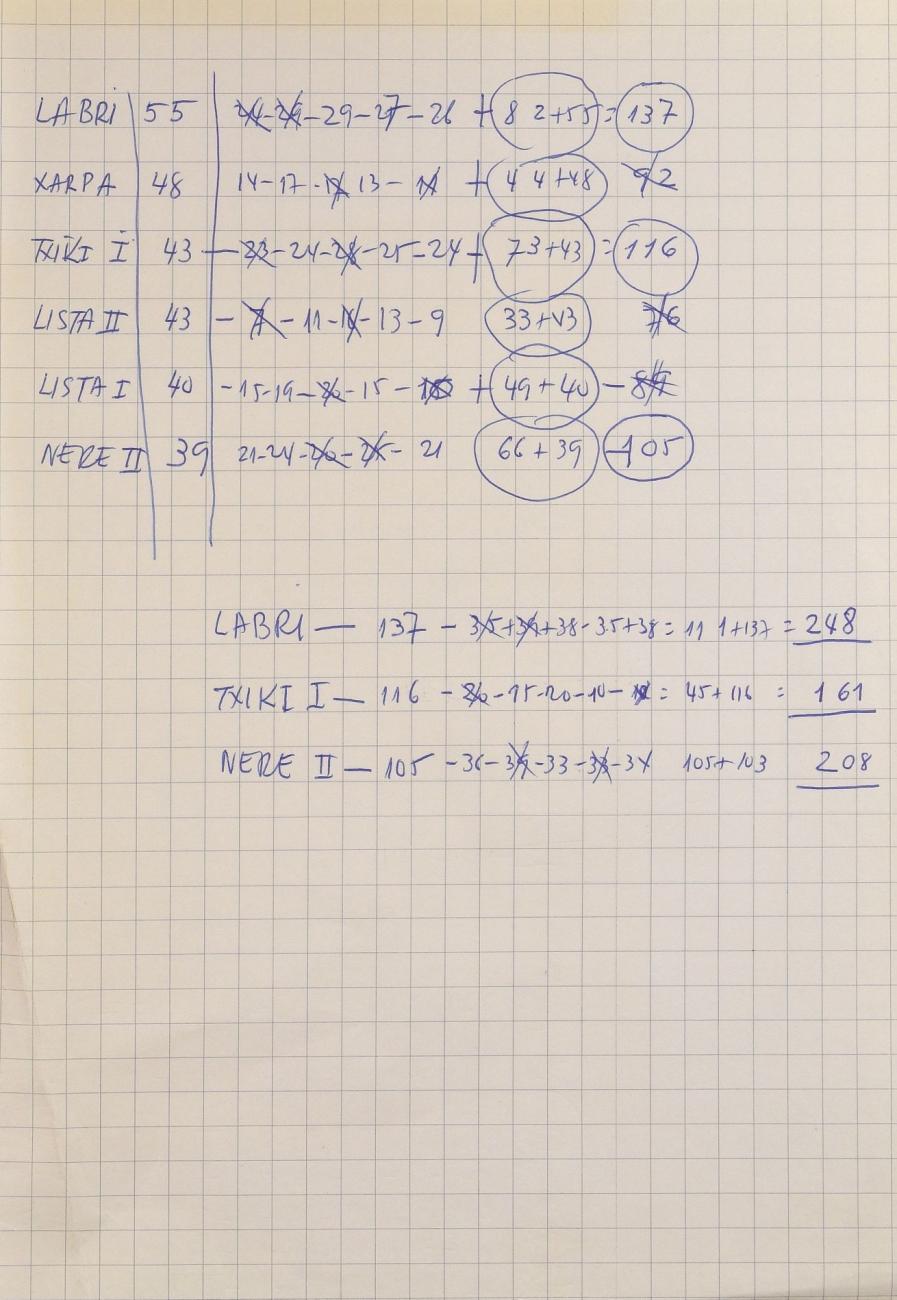 LABRI 55 24-29-29-27-26 +82+55=137
XARPA 48 14-17-17 13-11 +44+48 92
TXIKI I 43 -22-24-28-25-24+73+43=116
LISTA II 43 -7-11-14-13-9 33+43 76
LISTA I 40 -15-19-20-15-10 +49+40-89
NERE II 39 21-24-26-25-21 66+39-105
LABRI - 137 - 35+34+38-35+38=111+137=248
TXIKI I - 116 - 26-15-20-10-12=45+116=161
NERE II - 105 -36-37-33-33-34 105+103 208